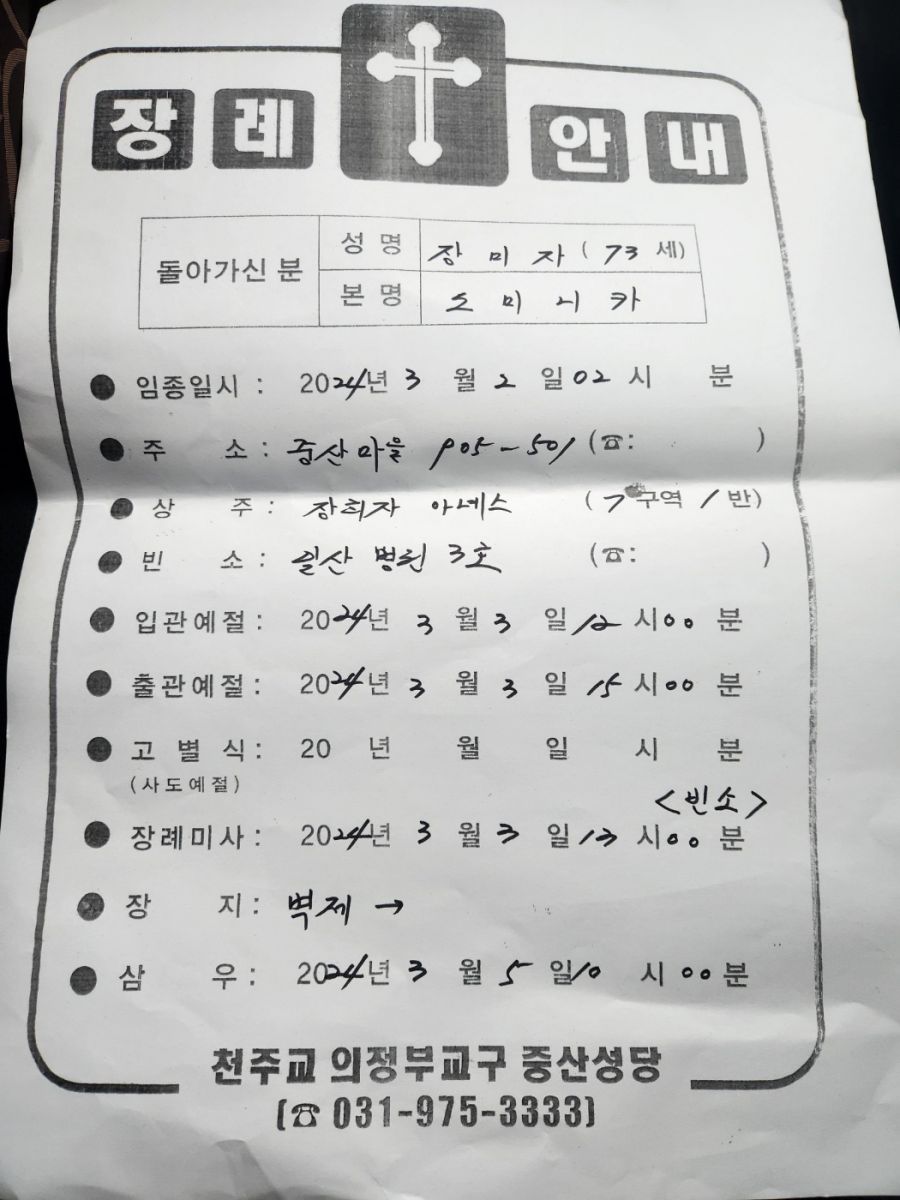 장례 안내
돌아가신 분 성명 장 미 자 ( 73 세)
본명 도 미 니 카
● 임종일시 : 2024년 3 월 2 일 02 시 분
● 주 소 : 중산마을 905-501 (☎: )
● 상 주 : 장희자 아녜스 ( 7 구역 1 반)
● 빈 소 : 일산 병원 3호 (☎: )
● 입관예절 : 2024년 3 월 3 일 12 시 00 분
● 출관예절 : 2024년 3 월 3 일 15 시 00 분
● 고 별 식 : 20 년 월 일 시 분
(사도예절)
<빈소>
● 장례미사 : 2024년 3 월 3 일 13 시 00 분
● 장 지 : 벽제 →
● 삼 우 : 2024년 3 월 5 일 10 시 00 분
천주교 의정부교구 중산성당
(☎ 031-975-3333)